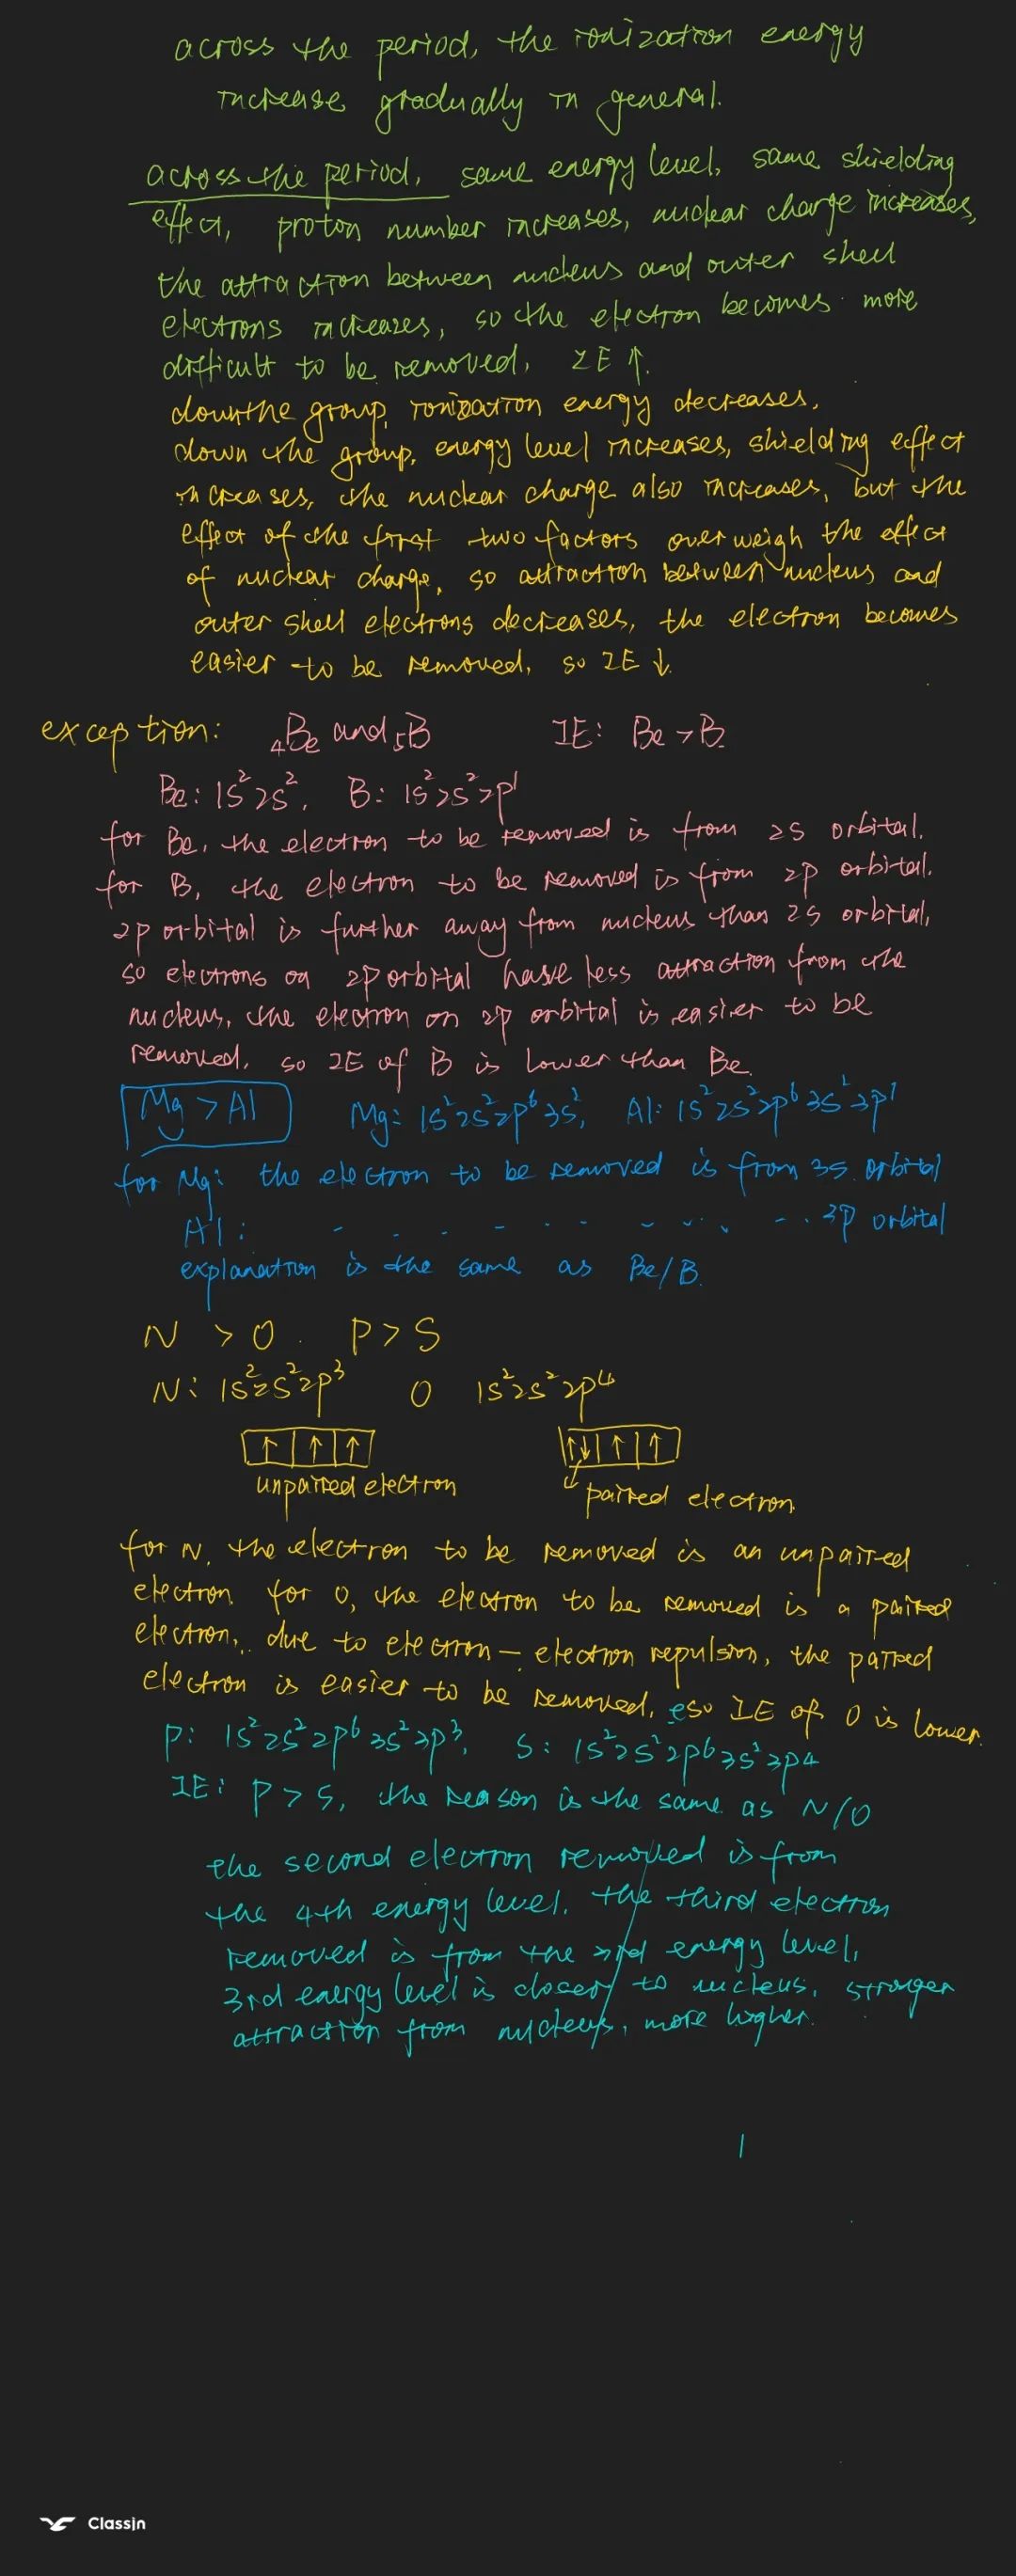 across the period, the ionization energy
increase gradually in general.
across the period, same energy level, same shielding
effect, proton number increases, nuclear charge increases,
the attraction between nucleus and outer shell
electrons increases, so the electron becomes more
difficult to be removed, IE ↑.
down the group, ionization energy decreases.
down the group, energy level increases, shielding effect
increases, the nuclear charge also increases, but the
effect of the first two factors overweigh the effect
of nuclear charge, so attraction between nucleus and
outer shell electrons decreases, the electron becomes
easier to be removed, so IE ↓.
exception: ₄Be and ₅B IE: Be > B
Be: 1s²2s², B: 1s²2s²2p¹
for Be, the electron to be removed is from 2s orbital.
for B, the electron to be removed is from 2p orbital.
2p orbital is further away from nucleus than 2s orbital,
so electrons on 2p orbital have less attraction from the
nucleus, the electron on 2p orbital is easier to be
removed, so IE of B is lower than Be.
Mg > Al Mg: 1s²2s²2p⁶3s², Al: 1s²2s²2p⁶3s²3p¹
for Mg: the electron to be removed is from 3s orbital
Al: - - - - - - - - - - - - 3p orbital
explanation is the same as Be/B.
N > O. P > S
N: 1s²2s²2p³ O 1s²2s²2p⁴
↑ ↑ ↑ ↑↓ ↑ ↑
unpaired electron paired electron
for N, the electron to be removed is an unpaired
electron, for O, the electron to be removed is a paired
electron, due to electron - electron repulsion, the paired
electron is easier to be removed, so IE of O is lower.
P: 1s²2s²2p⁶3s²3p³, S: 1s²2s²2p⁶3s²3p4
IE: P > S, the reason is the same as N/O
the second electron removed is from
the 4th energy level. the third electron
removed is from the 3rd energy level,
3rd energy level is closer to nucleus, stronger
attraction from nucleus, more higher.
ClassIn